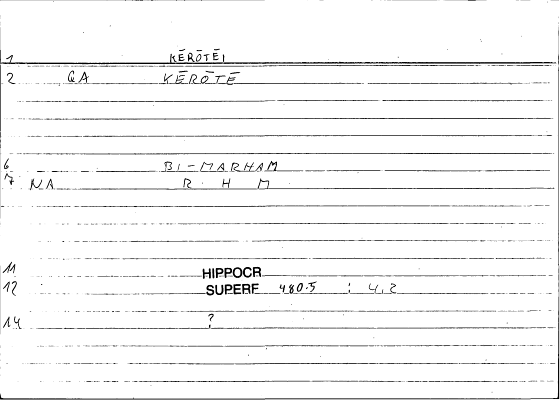 1 KĒRŌTĒI
2 GA KĒRŌTĒ
6 BI-MARHAM
7 NA R H M
11 HIPPOCR
12 SUPERF 480.5 : 4,2
14 ?